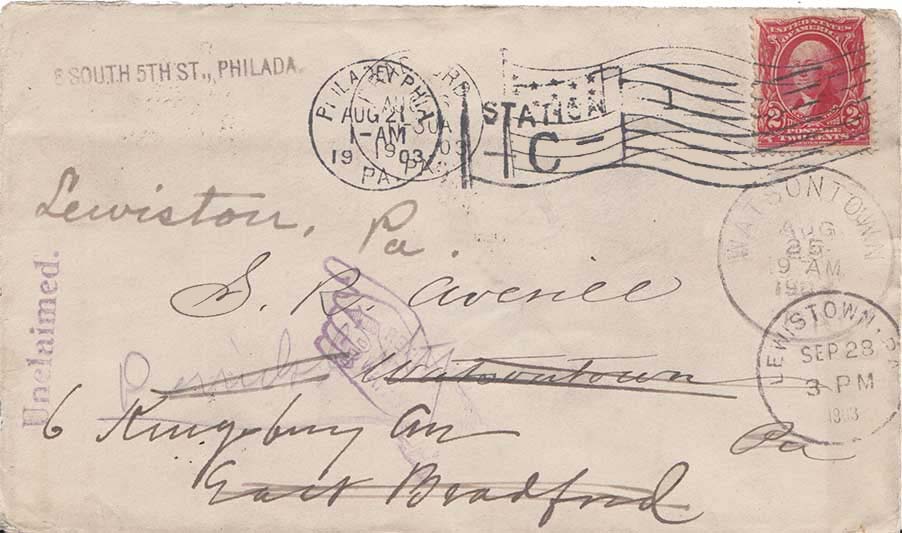 SOUTH 5TH ST., PHILADA.
PHILADELPHIA
AUG 21
1-AM
1903
PA.
STATION
C
1
UNITED STATES
OF AMERICA
2 2
POSTAGE
TWO CENTS
WATSONTOWN
AUG
25
9 AM
LEWISTOWN, PA
SEP 28
3 PM
1903
Lewiston, Pa.
S. R. Averill
Watsontown
6 Kingsbury Av
Pa
East Bradford
Unclaimed.